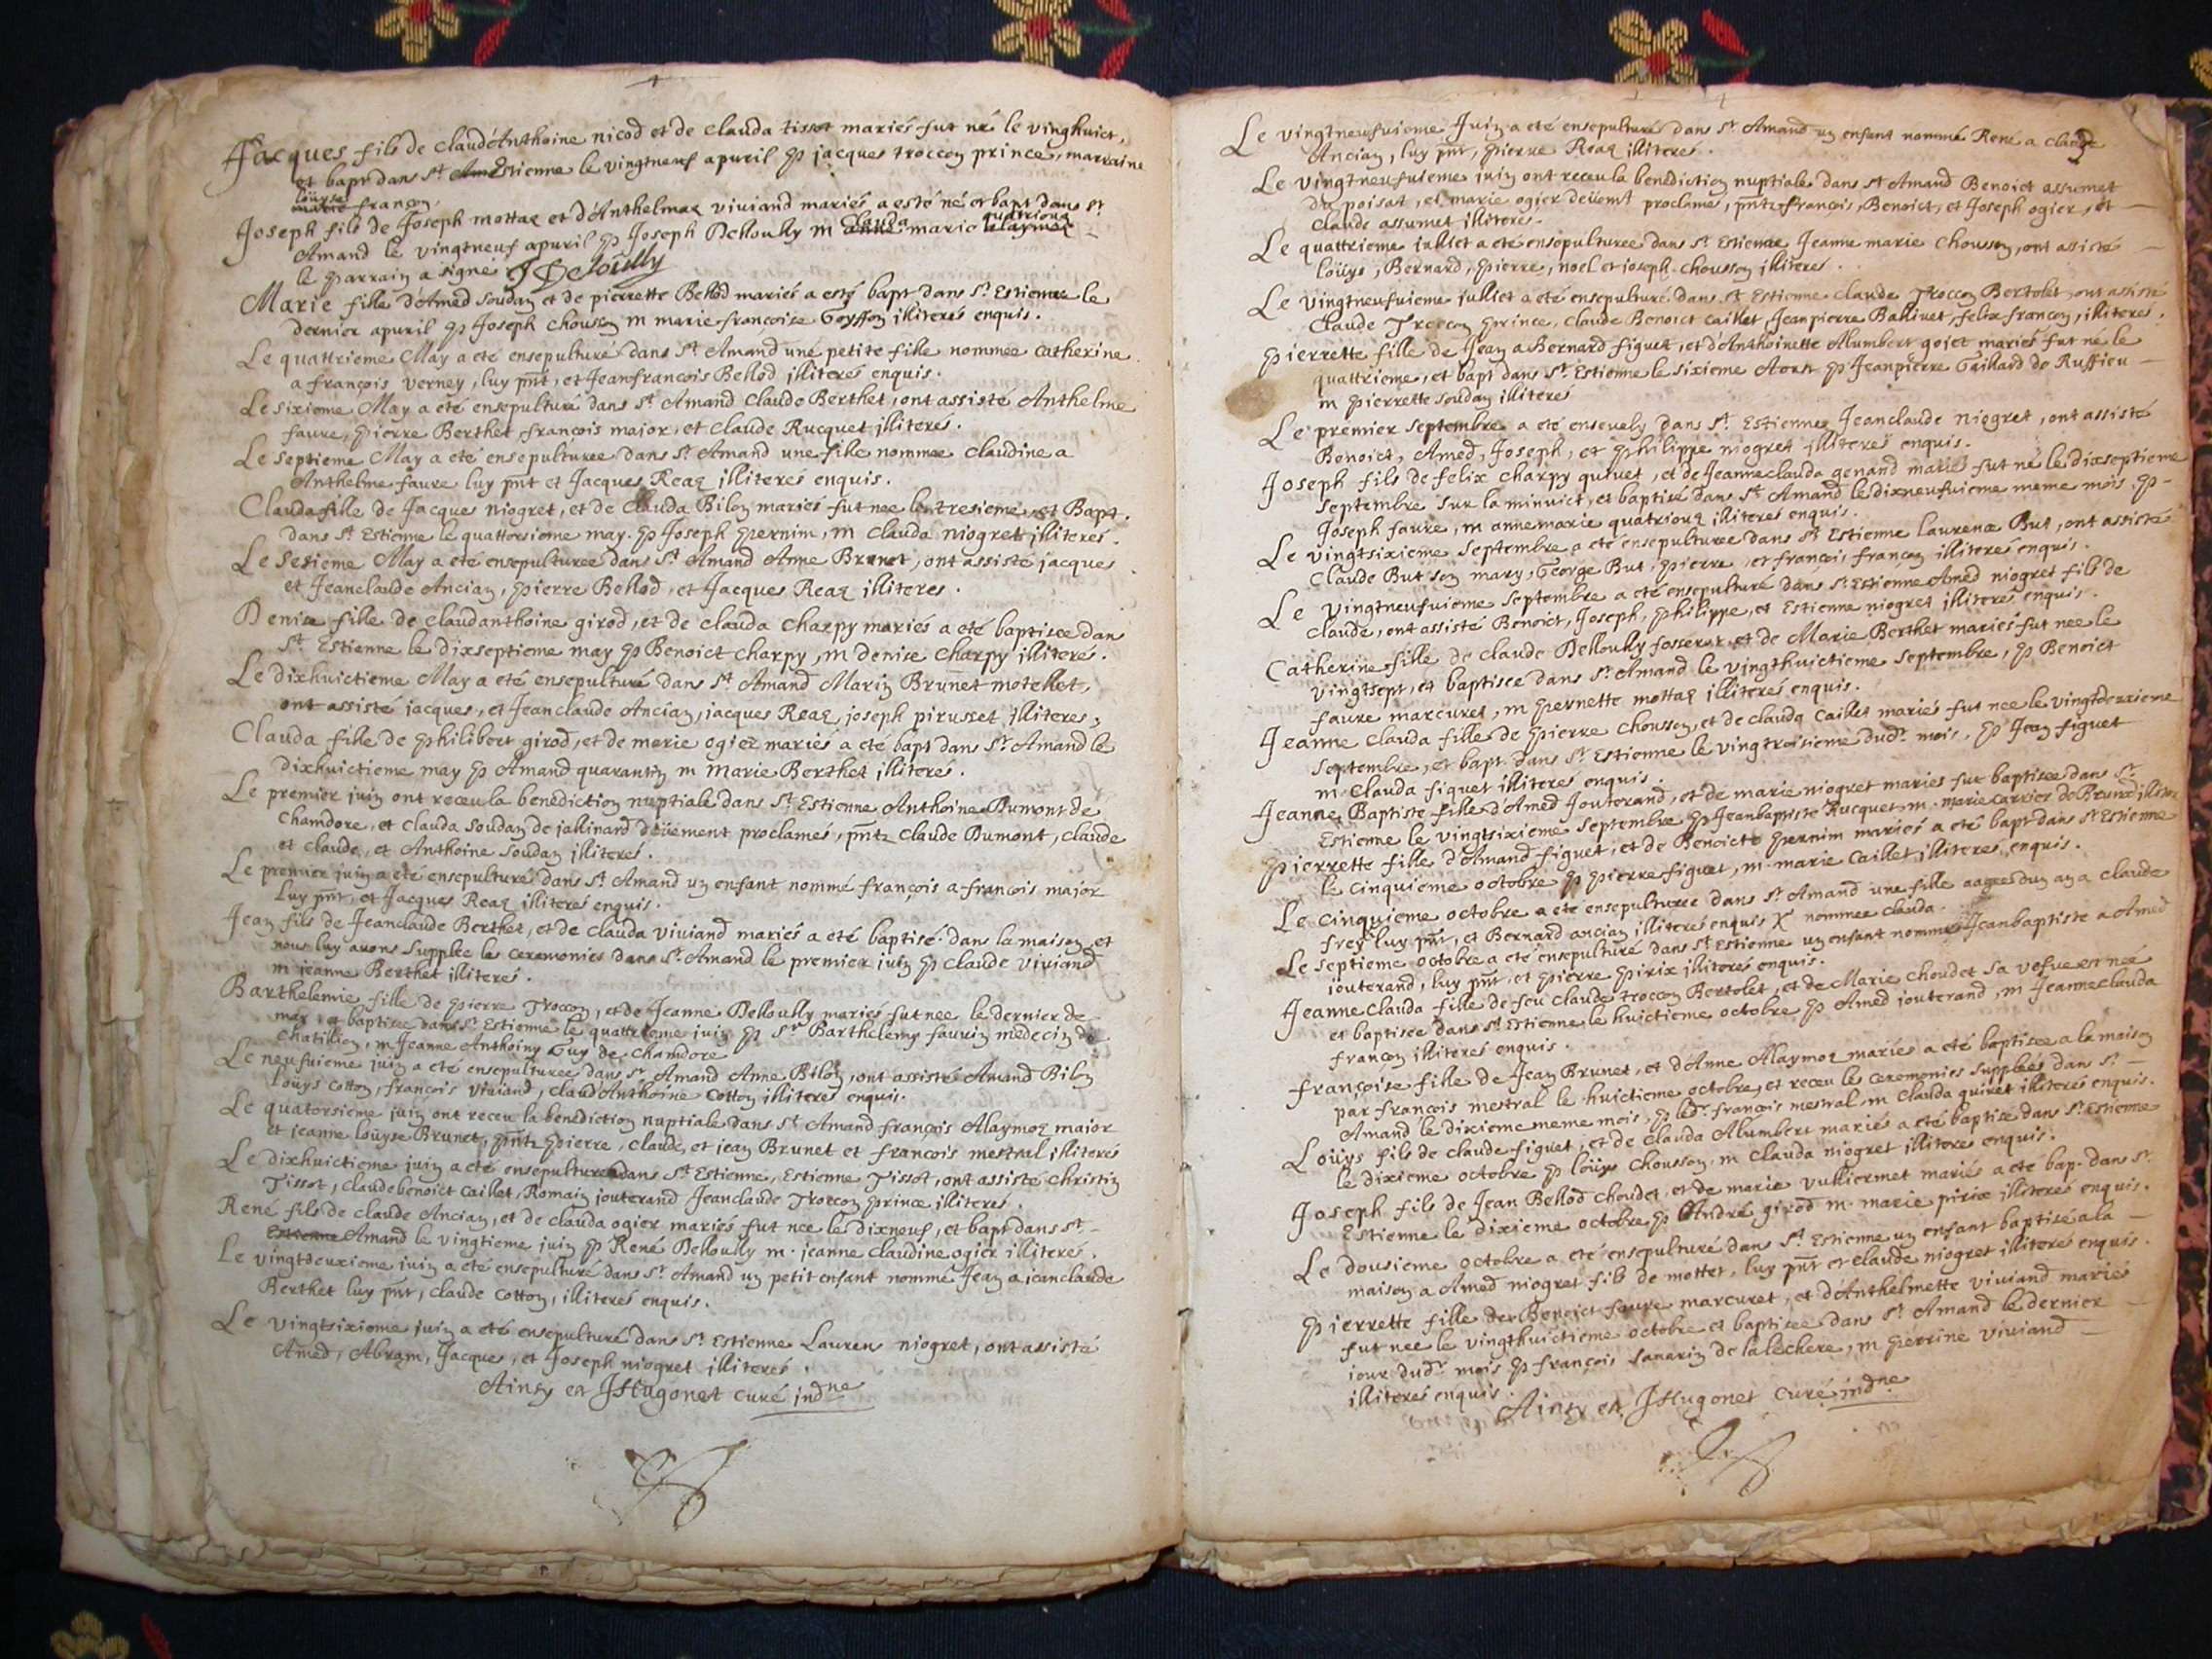 Jacques fils de Claud'Anthoine nicod et de Clauda tissot mariés fut né le vinghuict,
et bapt dans St Amd Estienne le vingtneuf apuril p jacques troccon prince, marraine
loüyse
marie françon.
Joseph fils de Joseph mottaz et d'Anthelmaz viuiand mariés a esté né et bapt dans St
Clauda quatriouz
Amand le vingtneuf apuril p Joseph Delloully m marie Alaymoz
le parrain a signé J Delloully
Marie fille d'Amed soudan et de pierrette Bellod mariés a esté bapt dans St Estienne le
dernier apuril p Joseph chousson m marie françoise Goyffon illiterés enquis.
Le quattrieme May a eté ensepulturé dans St Amand une petite fille nommee catherine
a françois verney, luy pnt, et Jeanfrancois Bellod illiterés enquis.
Le sixieme May a eté ensepulturé dans St Amand Claude Berthet, ont assisté Anthelme
faure, pierre Berthet, françois major, et claude Rucquet illiterés.
Le septieme May a eté ensepulturee dans St Amand une fille nommee Claudine a
Anthelme faure luy pnt et Jacques Reaz illiterés enquis.
Clauda fille de Jacques niogret, et de Clauda Bilon mariés fut nee le tresieme et Bapt.
dans St Estienne le quattorsieme may. p Joseph pernim, m Clauda niogret illiterés.
Le sesieme May a eté ensepulturee dans St Amand Anne Brunet, ont assisté jacques
et Jeanclaude Ancian, pierre Bellod, et Jacques Reaz illiteres.
Denise fille de claudanthoine girod, et de clauda Charpy mariés a eté baptisee dans
St Estienne le dixseptieme may p Benoict charpy, m denise Charpy illiterés.
Le dixhuictieme May a eté ensepulturé dans St Amand Marin Brunet motellet,
ont assisté jacques, et Jeanclaude Ancian, jacques Reaz, joseph pirusset illiteres,
Clauda fille de philibert girod, et de marie ogier mariés a eté bapt dans St Amand le
dixhuictieme may p Amand quarantin m Marie Berthet illiterés.
Le premier juin ont receu la benediction nuptiale dans St Estienne Anthoine Dumont de
Chamdore, et Clauda Soudan de jallinard deüement proclamés, pntz Claude Dumont, Claude
et Claude, et Anthoine Soudan illiterés.
Le premier juin a eté ensepulturé dans St Amand un enfant nommé françois a françois major
luy pnt, et Jacques Reaz illiterés enquis.
Jean fils de Jeanclaude Berthet, et de clauda viuiand mariés a eté baptisé dans la maison, et
nous luy auons supplée les ceremonies dans St Amand le premier juin p Claude viuiand
m jeanne Berthet illiterés.
Barthelemie fille de pierre Troccon, et de Jeanne Delloully mariés fut nee le dernier de
may, et baptisee dans St Estienne le quattrieme juin p Sr Barthelemy faurin medecin de
Chatillion, m Jeanne Anthoiny Guy de Chamdore
Le neufuieme juin a eté ensepulturee dans St Amand Anne Bilon, ont assisté Amand Bilon
loüys cotton, françois viuiand, claud'Anthoine Cotton illiterés enquis.
Le quatorsieme juin ont receu la benediction nuptiale dans St Amand françois Alaymoz major
et jeanne loüyse Brunet, pntz pierre, claude, et jean Brunet et francois mestral illiterés
Le dixhuictieme juin a eté ensepulture dans St Estienne, Estienne Tissot, ont assisté christin
Tissot, claudebenoict caillet, Romain jouterand Jeanclaude Troccon prince, illiterés.
René fils de claude Ancian, et de clauda ogier mariés fut nee le dixneuf, et bapt dans St
Estienne Amand le vingtieme juin p René Delloully m. jeanne claudine ogier illiterés.
Le vingtdeuxieme juin a eté ensepulturé dans St Amand un petit enfant nommé Jean a jeanclaude
Berthet luy pnt, claude cotton, illiterés enquis.
Le vingtsixieme juin a eté ensepulturé dans St Estienne Lauren niogret, ont assisté
Amed, Abram, Jacques, et Joseph niogret illiterés.
Ainsy est JHugonet curé indne
Le vingtneufuieme Juin a eté ensepulturé dans St Amand un enfant nommé René a claude
Ancian, luy pnt, pierre Reaz illiterés.
Le vingtneufuieme juin ont receu la benediction nuptiale dans St Amand Benoict assumet
du poisat, et marie ogier deüemt proclamés, pntz françois, Benoict, et Joseph ogier, et
Claude assumet illiterés.
Le quattrieme julliet a eté ensepulturee dans St Estienne Jeanne marie Chousson, ont assisté
loüys, Bernard, pierre, noel et joseph chousson illiterés.
Le vingtneufuieme julliet a eté ensepulturé dans St Estienne claude Troccon Bertolet, ont assisté
Claude Troccon prince, Claude Benoict caillet, Jeanpierre Ballivet, felix françon, illiterés.
pierrette fille de Jean a Bernard figuet, et d'Anthoinette Alumbert gojet mariés fut né le
quattrieme, et bapt dans St Estienne le sixieme Aoust p Jeanpierre Gaillard de Ruffieu
m pierrette soudan illiterés
Le premier septembre a eté ensevely dans St Estienne Jeanclaude niogret, ont assisté
Benoict, Amed, Joseph, et philippe niogret illiterés enquis.
Joseph fils de felix charpy quivet, et de Jeanneclauda genand mariés fut né le dixseptieme
septembre sur la minuict, et baptisé dans St Amand le dixneufuieme meme mois p
Joseph faure, m annemarie quatriouz illiterés enquis.
Le vingtsixieme septembre a eté ensepulturee dans St Estienne laurence But, ont assisté
Claude But son mary, George But, pierre, et françois françon illiterés enquis.
Le vingtneufuieme septembre a eté ensepulturé dans St Estienne Amed niogret fils de
claude, ont assisté Benoict, Joseph, philippe, et Estienne niogret illiterés enquis.
Catherine fille de claude Delloully fosserer et de Marie Berthet mariés fut nee le
vingtsept, et baptisee dans St Amand le vingthuictieme septembre, p Benoict
faure marcuret, m pernette mottaz illiterés enquis.
Jeanne Clauda fille de pierre chousson, et de clauda Caillet mariés fut nee le vingtdeuxieme
septembre, et bapt. dans St Estienne le vingtroisieme dudt mois, p Jean figuet
m. Clauda figuet illiterés enquis.
Jeanne Baptiste fille d'Amed Jouterand, et de marie niogret mariés fut baptisee dans St
Estienne le vingtsixieme septembre p Jeanbaptiste Rucquet m. marie Carrier de Brunod illiterés
pierrette fille d'Amand figuet, et de Benoicte pernim mariés a eté bapt dans St Estienne
le cinquieme octobre p pierre figuet, m. marie caillet illiterés enquis.
Le cinquieme octobre a eté ensepulturee dans St Amand une fille aagee dun an a claude
frey luy pnt, et Bernard ancian illiterés enquis X nommee clauda.
Le septieme octobre a eté ensepulturé dans St Estienne un enfant nommé Jeanbaptiste a Amed
jouterand, luy pnt, et pierre pirix illiterés enquis.
Jeanne Clauda fille de feu claude troccon Bertolet, et de Marie Choudet sa vefue est née
et baptisee dans St Estienne le huictieme octobre p Amed jouterand, m Jeanne Clauda
françon illiterés enquis.
françoise fille de Jean Brunet, et d'Anne Alaymoz mariés a eté baptisee a la maison
par françois mestral le huictieme octobre, et receu les ceremonies supplées dans St
Amand le dixieme meme mois, p ledt. françois mestral, m Clauda quivet illiterés enquis.
Loüys fils de claude figuet, et de Clauda Alumbert mariés a eté baptisé dans St Estienne
le dixieme octobre p loüys chousson, m Clauda niogret illiterés enquis.
Joseph fils de Jean Bellod choudet, et de marie vulliermet mariés a eté bap. dans St
Estienne le dixieme octobre p André girod m. marie pirix illiterés enquis.
Le dousieme octobre a eté ensepulturé dans St Estienne un enfant baptisé a la
maison a Amed niogret fils de mottet, luy pnt et claude niogret illiterés enquis.
pierrette fille de Benoict faure marcuret, et d'Anthelmette viuiand mariés
fut nee le vingthuictieme octobre et baptisee dans St Amand le dernier
jour dudt mois p françois sauarin de la lechere, m perrine viuiand
illiterés enquis.
Ainsy est JHugonet Curé indne